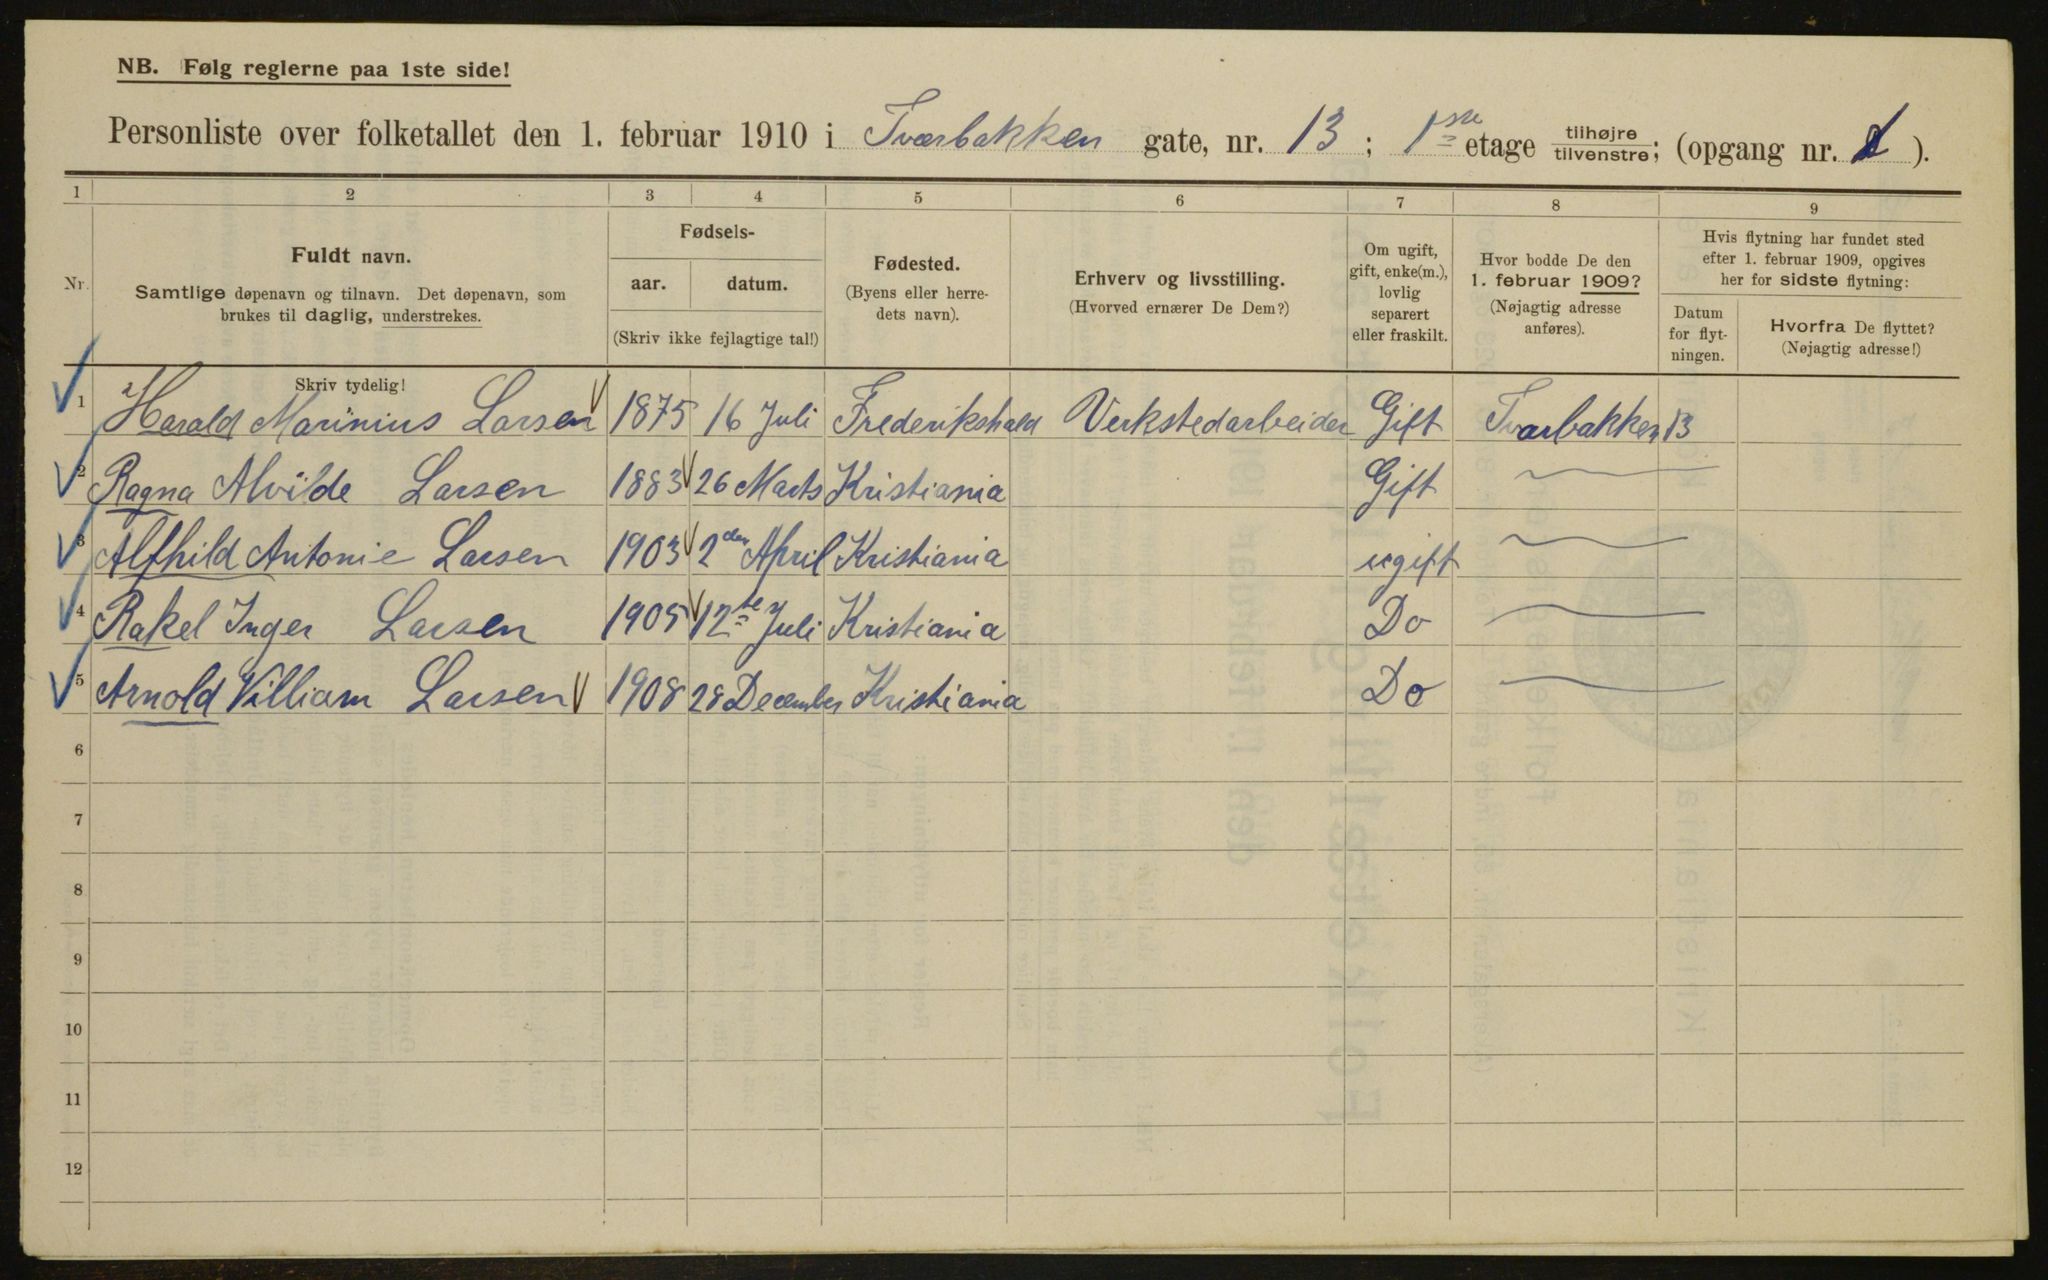 NB. Følg reglerne paa 1ste side!
Personliste over folketallet den 1. februar 1910 i Tværbakken gate, nr. 13 ; 1ste etage tilhøjre/tilvenstre; (opgang nr. ).
1 2 3 4 5 6 7 8 9
Nr.
Fuldt navn.
Samtlige døpenavn og tilnavn. Det døpenavn, som
brukes til daglig, understrekes.
Skriv tydelig!
Fødsels-
aar. datum.
(Skriv ikke fejlagtige tal!)
Fødested.
(Byens eller herre-
dets navn).
Erhverv og livsstilling.
(Hvorved ernærer De Dem?)
Om ugift,
gift, enke(m.),
lovlig
separert
eller fraskilt.
Hvor bodde De den
1. februar 1909?
(Nøjagtig adresse
anføres).
Hvis flytning har fundet sted
efter 1. februar 1909, opgives
her for sidste flytning:
Datum
for flyt-
ningen.
Hvorfra De flyttet?
(Nøjagtig adresse!)
1 Harald Marinius Larsen 1875 16 Juli Frederikshald Verkstedarbeider Gift Tværbakken 13
2 Ragna Alvilde Larsen 1883 26 Marts Kristiania Gift
3 Alfhild Antonie Larsen 1903 2den April Kristiania ugift
4 Rakel Inger Larsen 1905 12te Juli Kristiania Do
5 Arnold Villiam Larsen 1908 28 December Kristiania Do
6
7
8
9
10
11
12